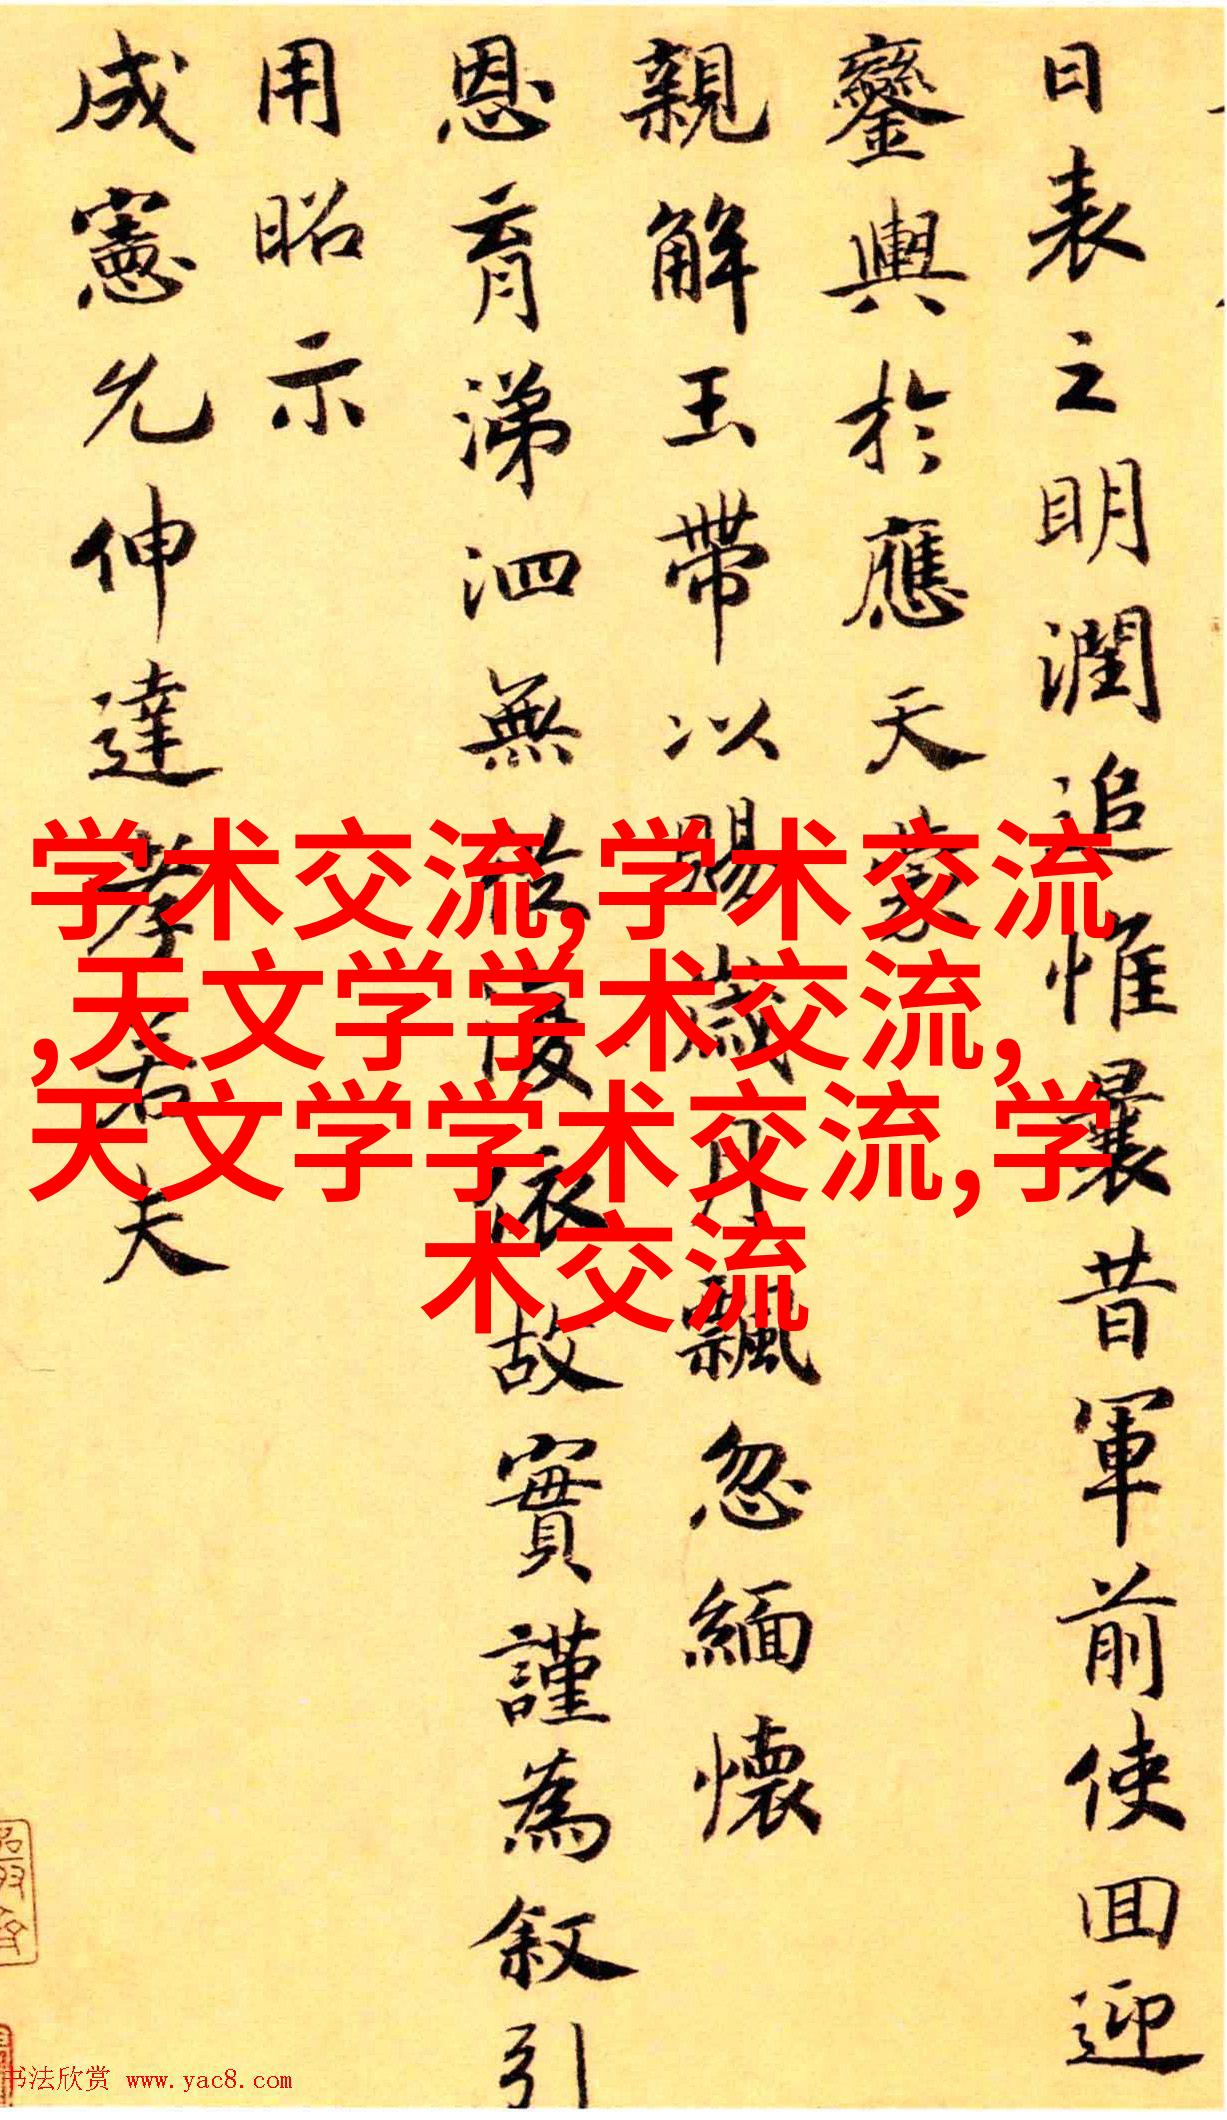 日表之明潤追惟曩昔軍前使回迎
鑾輿於應天蒙
親解玉帶以賜歲月飄忽緬懷
恩育涕泗無從依故實謹為叙引
用昭示
成憲允伸達孝若夫
学术交流,学术交流
,天文学学术交流,
天文学学术交流,学
术交流
书法欣赏 www.yac8.com